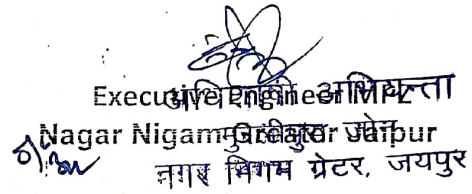 Executive Engineer MPZ
अधिशाषी अभियन्ता
Nagar Nigam Greater Jaipur
मुरलीपुरा जोन
नगर निगम ग्रेटर, जयपुर